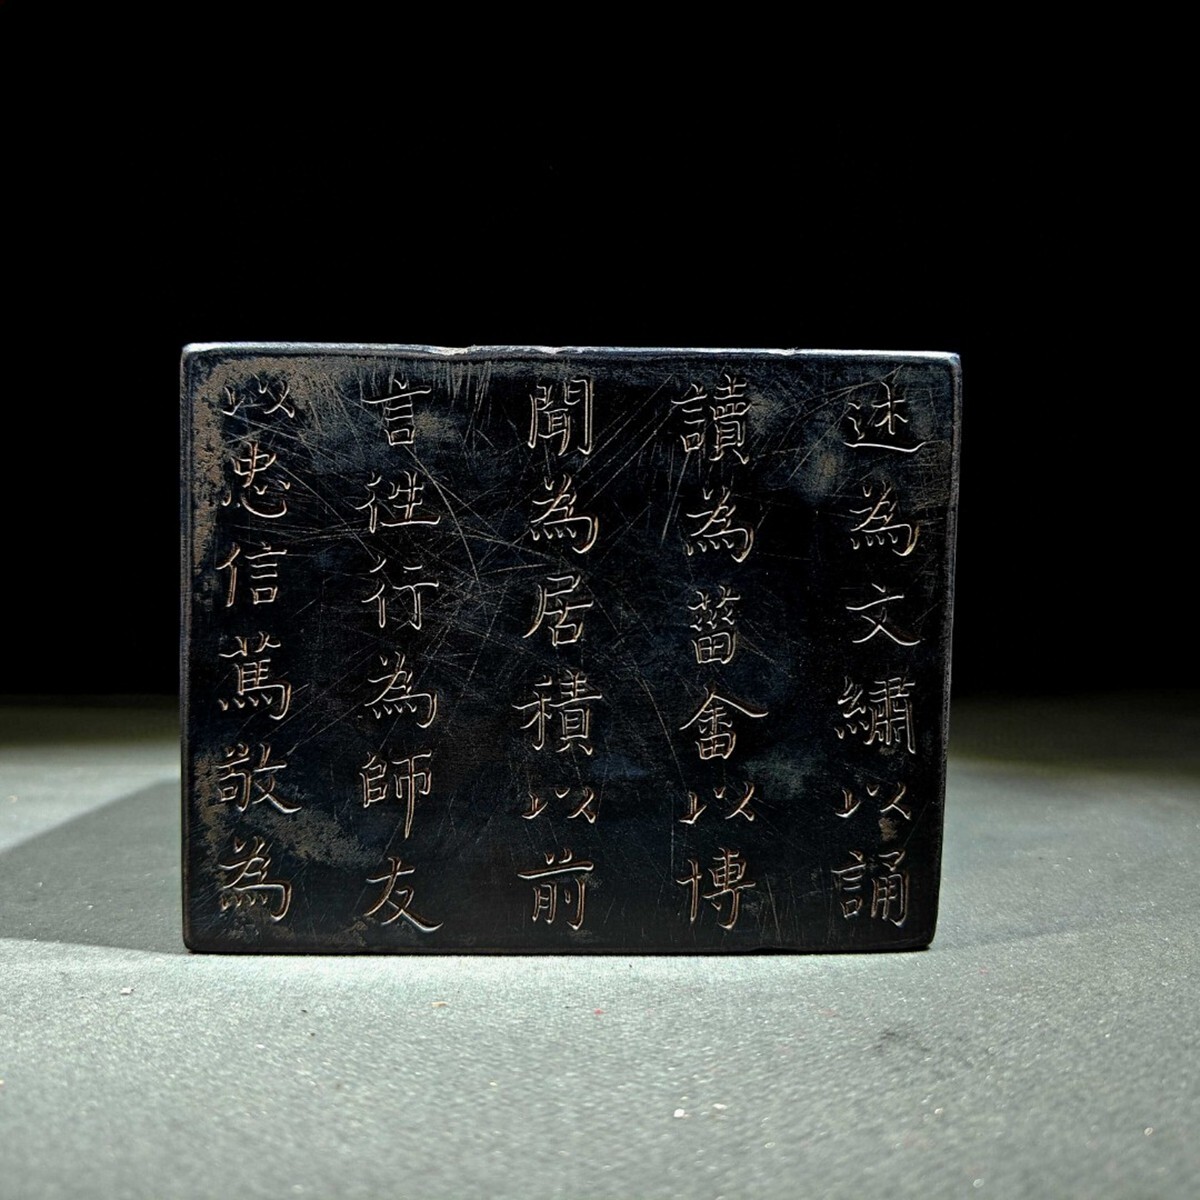 述為文繡以誦
讀為菑畬以博
聞為居積以前
言徃行為師友
以忠信篤敬為